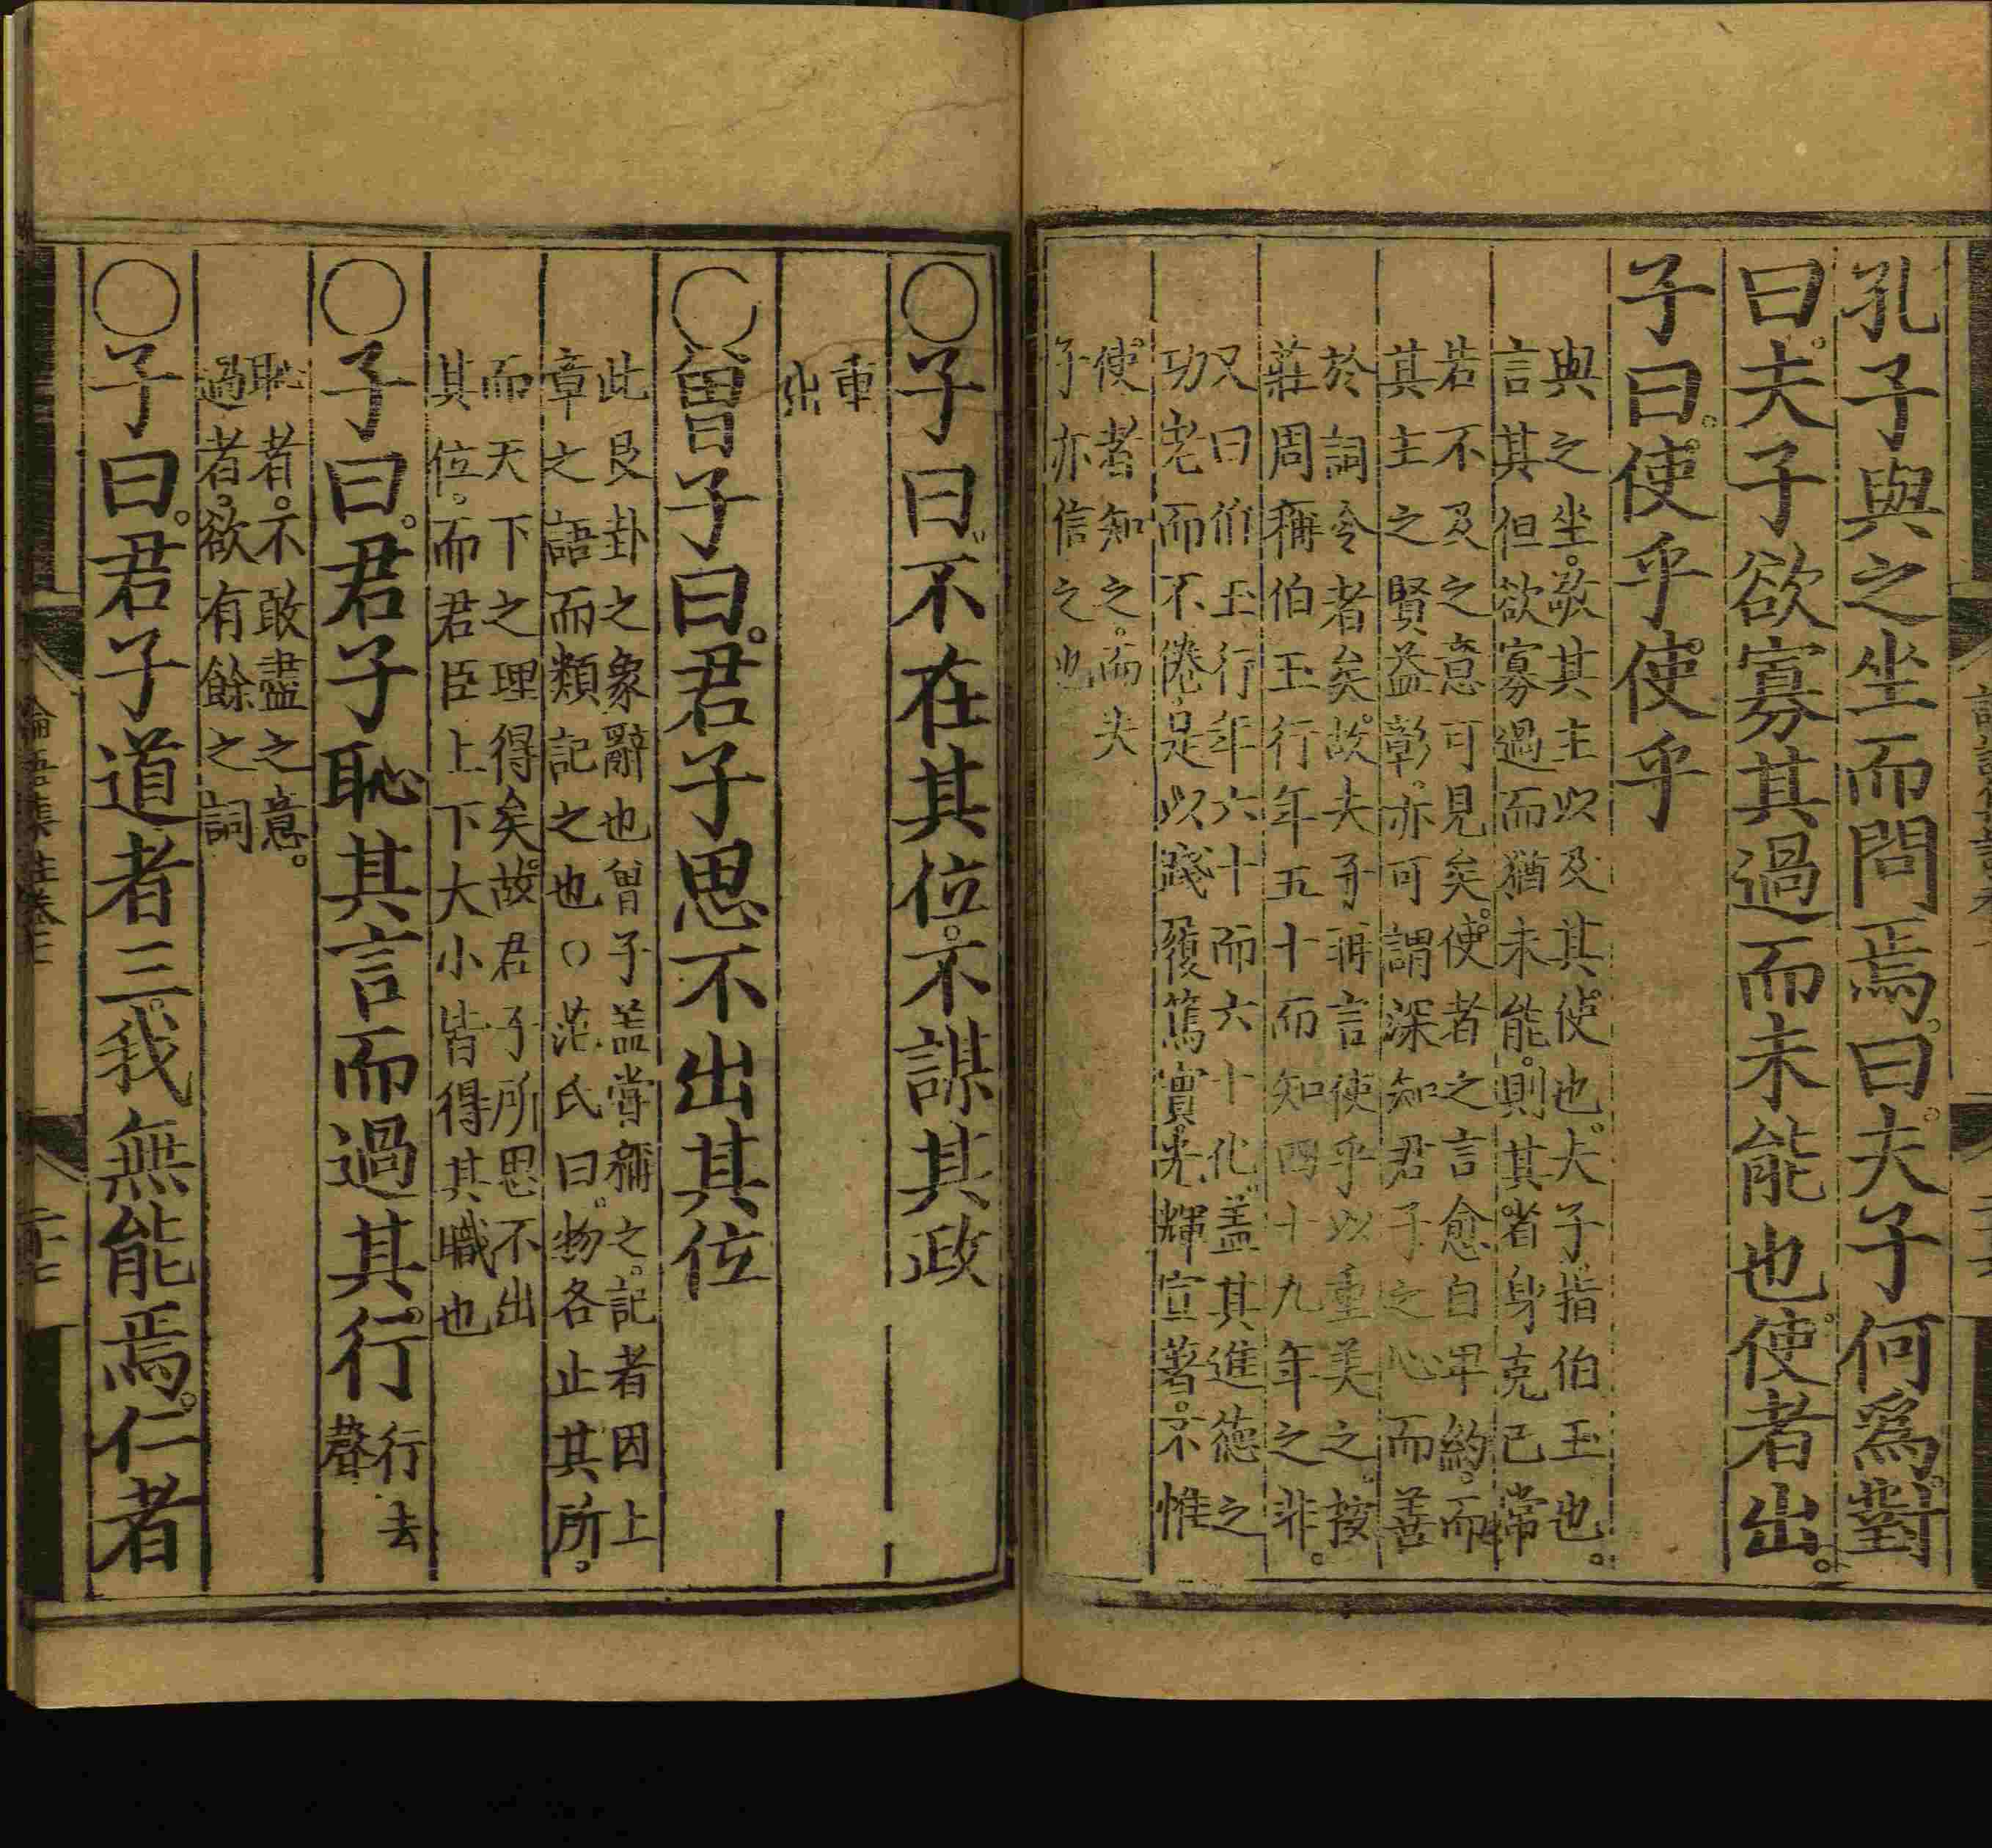 孔子與之坐而問焉。曰。夫子何爲。對
曰。夫子欲寡其過而未能也。使者出。
子曰。使乎使乎
與之坐。敬其主以及其使也。夫子指伯玉也。
言其但欲寡過而猶未能。則其省身克己常
若不及之意可見矣。使者之言愈自卑約。而
其主之賢益彰。亦可謂深知君子之心而善
於詞令者矣。故夫子再言使乎以重美之。按。
莊周稱伯玉行年五十而知四十九年之非。
又曰伯玉行年六十而六十化。盖其進德之
功老而不倦。是以踐履篤實。光輝宣著。不惟
使者知之。而夫
子亦信之也
○子曰。不在其位。不謀其政
重
出
○曾子曰。君子思不出其位
此艮卦之象辭也曾子盖嘗稱之。記者因上
章之語而類記之也○范氏曰。物各止其所。
而天下之理得矣。故君子所思不出
其位。而君臣上下大小皆得其職也
○子曰。君子恥其言而過其行。行去聲
恥者。不敢盡之意。
過者。欲有餘之詞
○子曰。君子道者三。我無能焉。仁者
論語集註卷七
二十七